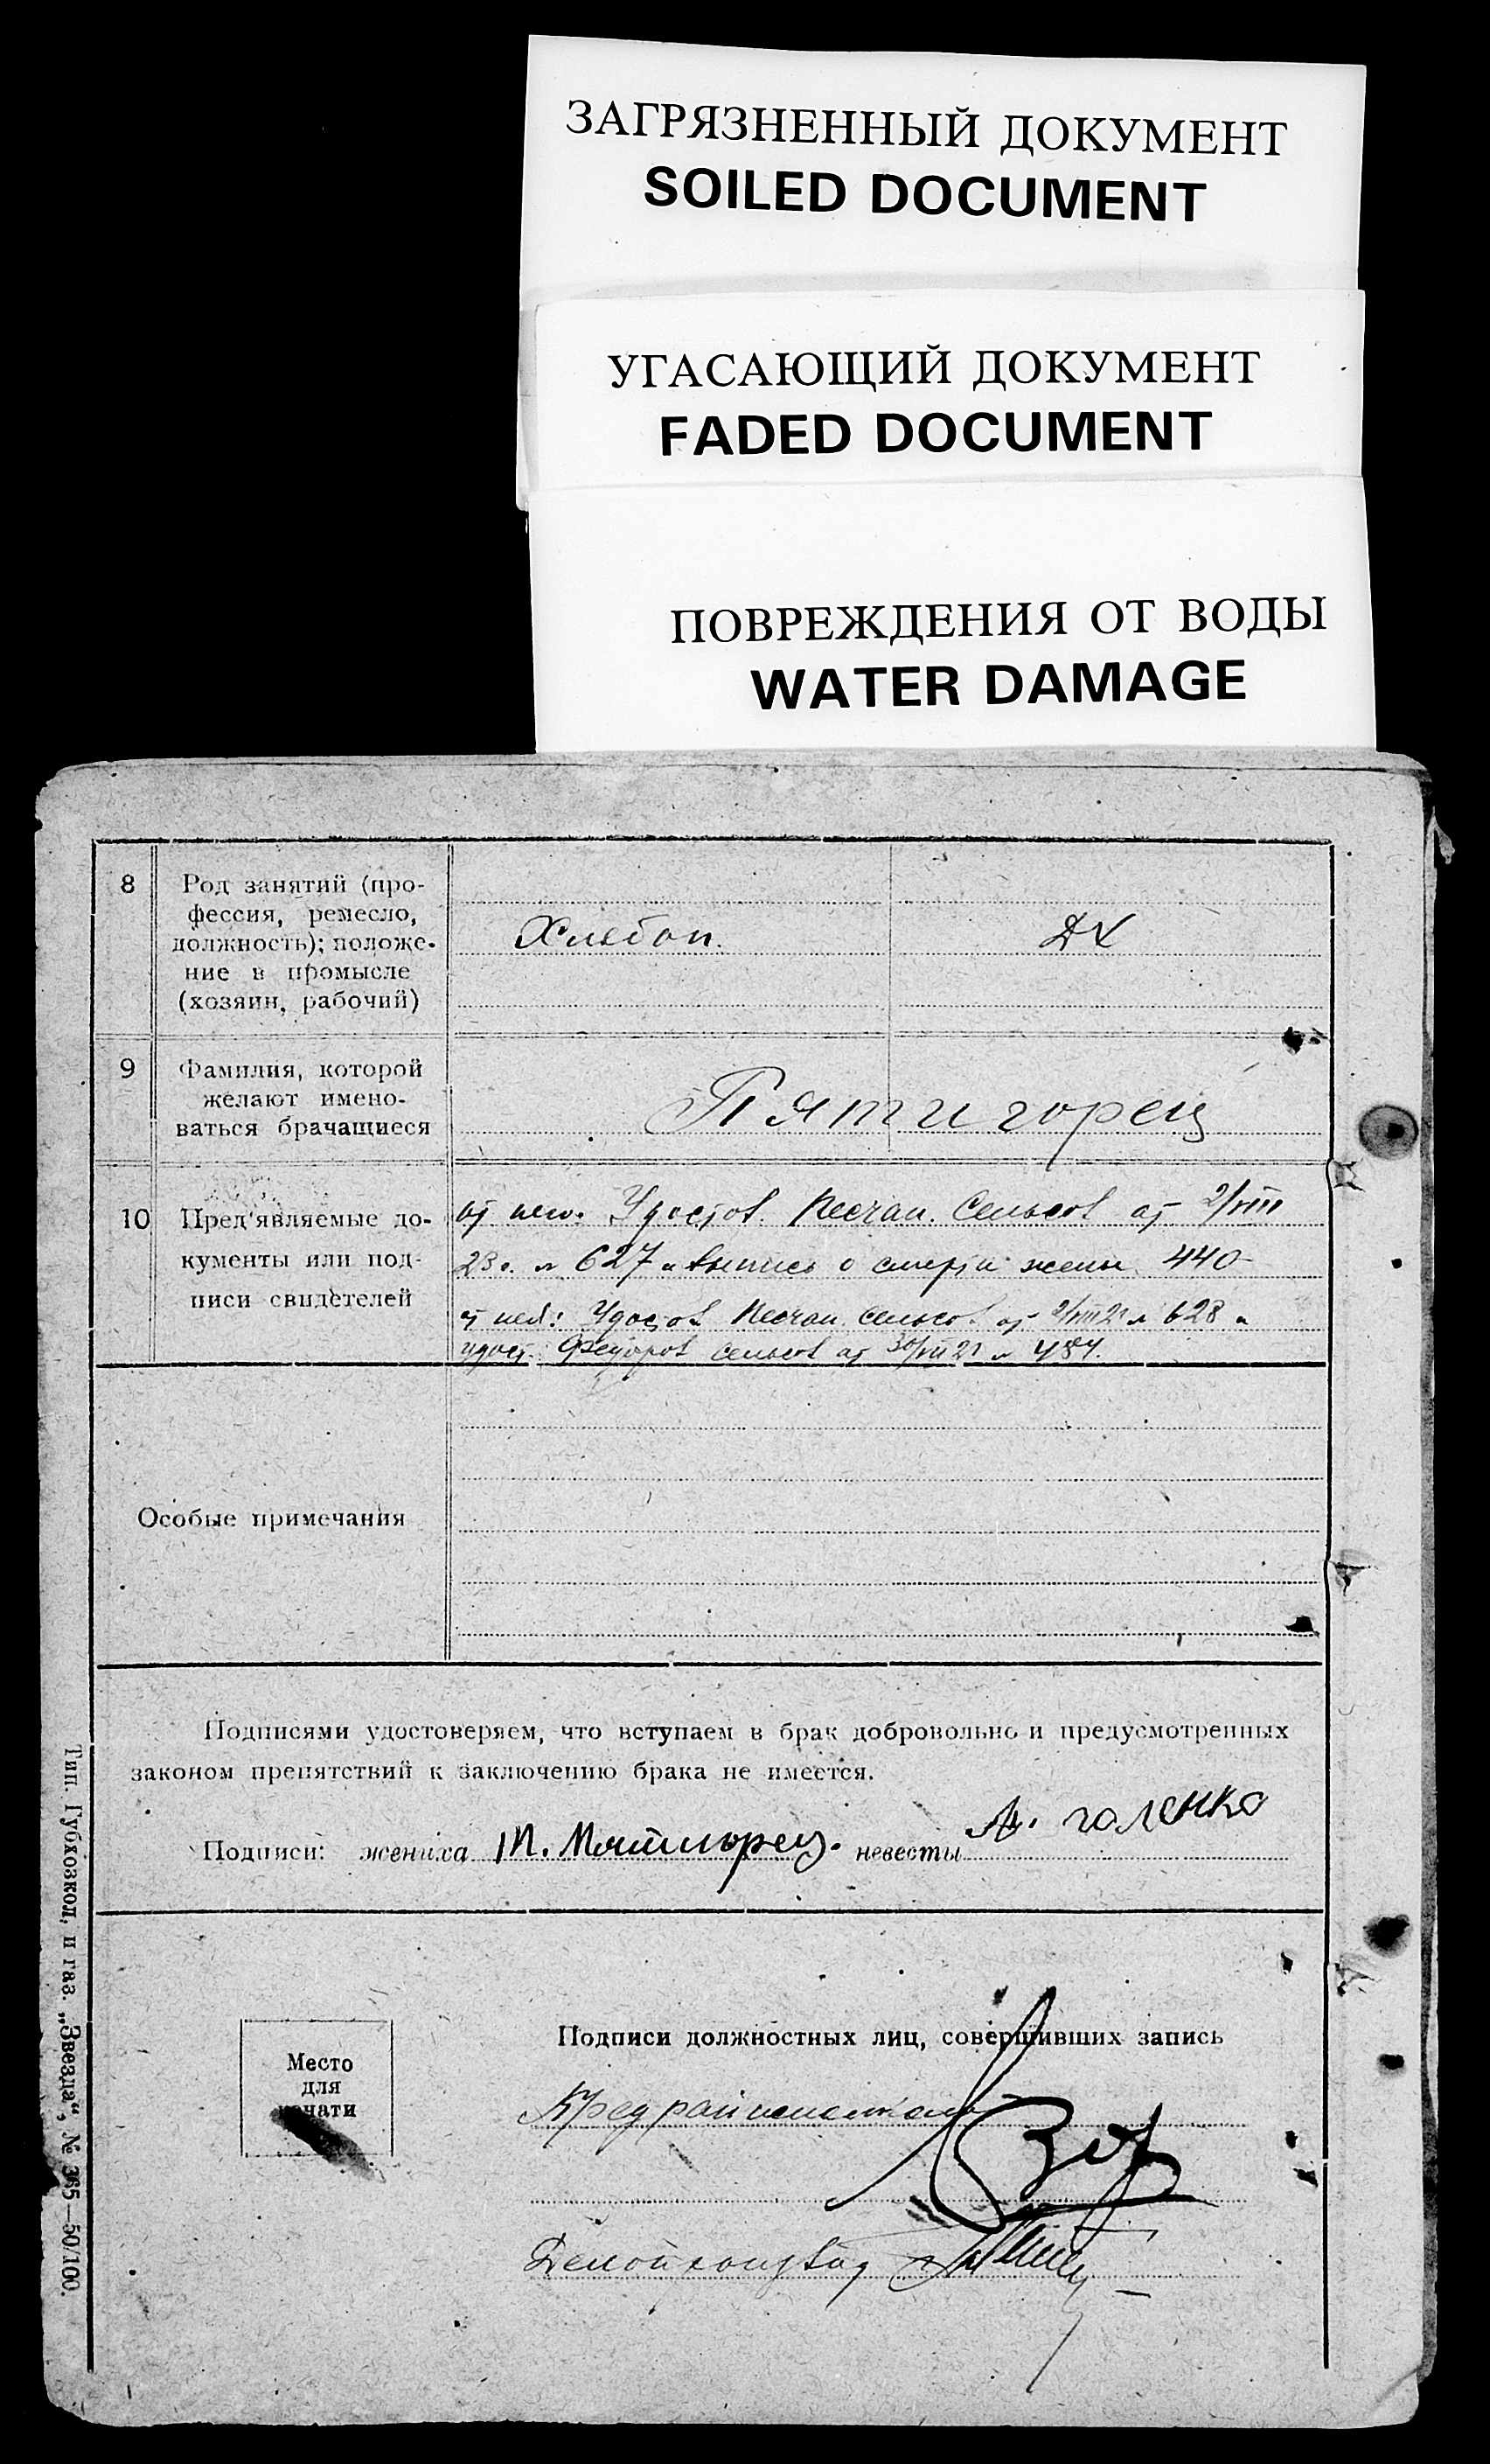 ЗАГРЯЗНЕННЫЙ ДОКУМЕНТ
SOILED DOCUMENT
УГАСАЮЩИЙ ДОКУМЕНТ
FADED DOCUMENT
ПОВРЕЖДЕНИЯ ОТ ВОДЫ
WATER DAMAGE
8
Род занятий (про-
фессия, ремесло,
должность); положе-
ние в промысле
(хозяин, рабочий)
Хлебоп.
ДХ
9
Фамилия, которой
желают имено-
ваться брачащиеся
Пятигорец
10
Пред'являемые до-
кументы или под-
писи свидетелей
от жен. Удостов. Песчан. Сельсов от 2/VIII
23 г. № 627 и выпись о смерти жены 440
от нев: Удостов Песчан. сельсов. от 2/VIII 2 № 628 и
удост. Федоров сельсов от 30/VII 2 № 484.
Особые примечания
Подписями удостоверяем, что вступаем в брак добровольно и предусмотренных
законом препятствий к заключению брака не имеется.
Подписи: жениха П. Пятигорец. невесты А. Галенко
Место
для
печати
Подписи должностных лиц, совершивших запись
Предрайисполкома
Делопроизвод
Тип. Губкозкол, и газ. „Звезда“, № 365—50/100.